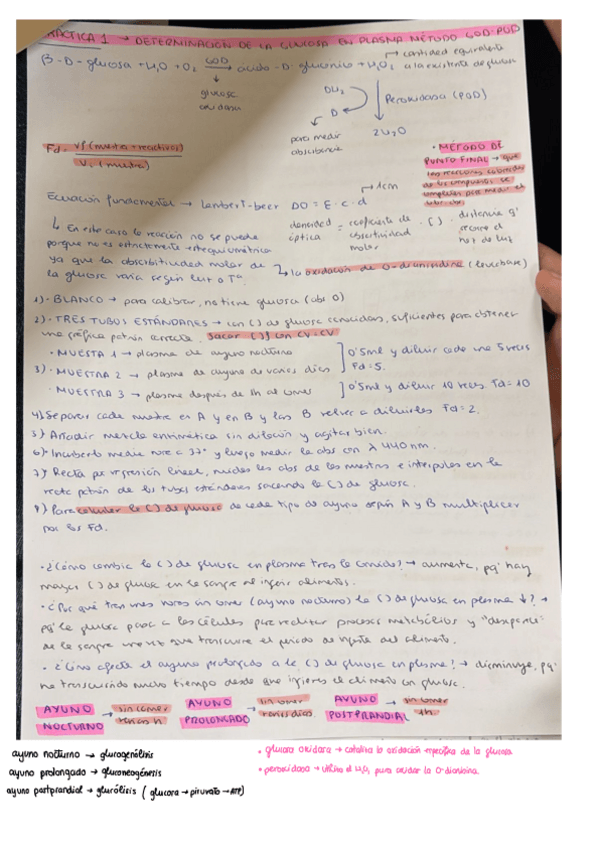 PRÁCTICA 1 → DETERMINACIÓN DE LA GLUCOSA EN PLASMA MÉTODO GOD-POD
→ cantidad equivalente a la existente de glucosa
β-D-glucosa + H2O + O2 GOD → ácido-D-glucónico + H2O2
↓ glucosa oxidasa
DH2
D
Peroxidasa (POD)
2H2O
para medir absorbancia
Fd = Vf (muestra + reactivos)
Vi (muestra)
• MÉTODO DE PUNTO FINAL →
Ecuación fundamental → Lambert-beer DO = ε · c · d → 1cm
densidad óptica = coeficiente de absortividad molar · [ ] · distancia q' recorre el haz de luz
↳ En este caso la reacción no se puede
porque no es estrictamente estequiométrica
ya que la absorbitividad molar de ↳ la oxidación de O-dianisidina (leucobase)
la glucosa varía según luz o Tª.
1) - BLANCO → para calibrar, no tiene glucosa (abs 0)
2) - TRES TUBOS ESTÁNDARES → con [ ] de glucosa conocidas, suficientes para obtener
una gráfica patrón correcta. Sacar [ ] con CV=CV
3) • MUESTA 1 → plasma de ayuno nocturno
• MUESTRA 2 → plasma de ayuno de varios días
] 0'5ml y diluir cada una 5 veces Fd = 5.
• MUESTRA 3 → plasma después de 1h al comer ] 0'5ml y diluir 10 veces. Fd = 10
4) Separar cada muestra en A y en B y las B volver a diluirlas Fd = 2.
5) Añadir mezcla enzimática sin dilución y agitar bien.
6) Incubarlo media hora a 37º y luego medir la abs con λ 440 nm.
7) Recta por regresión lineal, mides las abs de las muestras e interpolas en la
recta patrón de los tubos estándares sacando la [ ] de glucosa.
8) Para calcular la [ ] de glucosa de cada tipo de ayuno según A y B multiplicar
por los Fd.
• ¿Cómo cambia la [ ] de glucosa en plasma tras la comida? → aumenta, pq' hay
mayor [ ] de glucosa en la sangre al ingerir alimentos.
• ¿Por qué tras unas horas sin comer (ayuno nocturno) la [ ] de glucosa en plasma ↓? →
pq' la glucosa pasa a las células para realizar procesos metabólicos y "desaparece"
de la sangre una vez que transcurre el periodo de ingesta del alimento.
• ¿Cómo afecta el ayuno prolongado a la [ ] de glucosa en plasma? → disminuye, pq'
ha transcurrido mucho tiempo desde que ingieres el alimento con glucosa.
AYUNO NOCTURNO → sin comer varias h
AYUNO PROLONGADO → sin comer varios días
AYUNO POSTPRANDIAL → sin comer 1h
ayuno nocturno → glucogenólisis
ayuno prolongado → gluconeogénesis
ayuno postprandial → glucólisis (glucosa → piruvato → ATP)
• glucosa oxidasa → cataliza la oxidación específica de la glucosa.
• peroxidasa → utiliza el H2O2 para oxidar la O-dianisina.